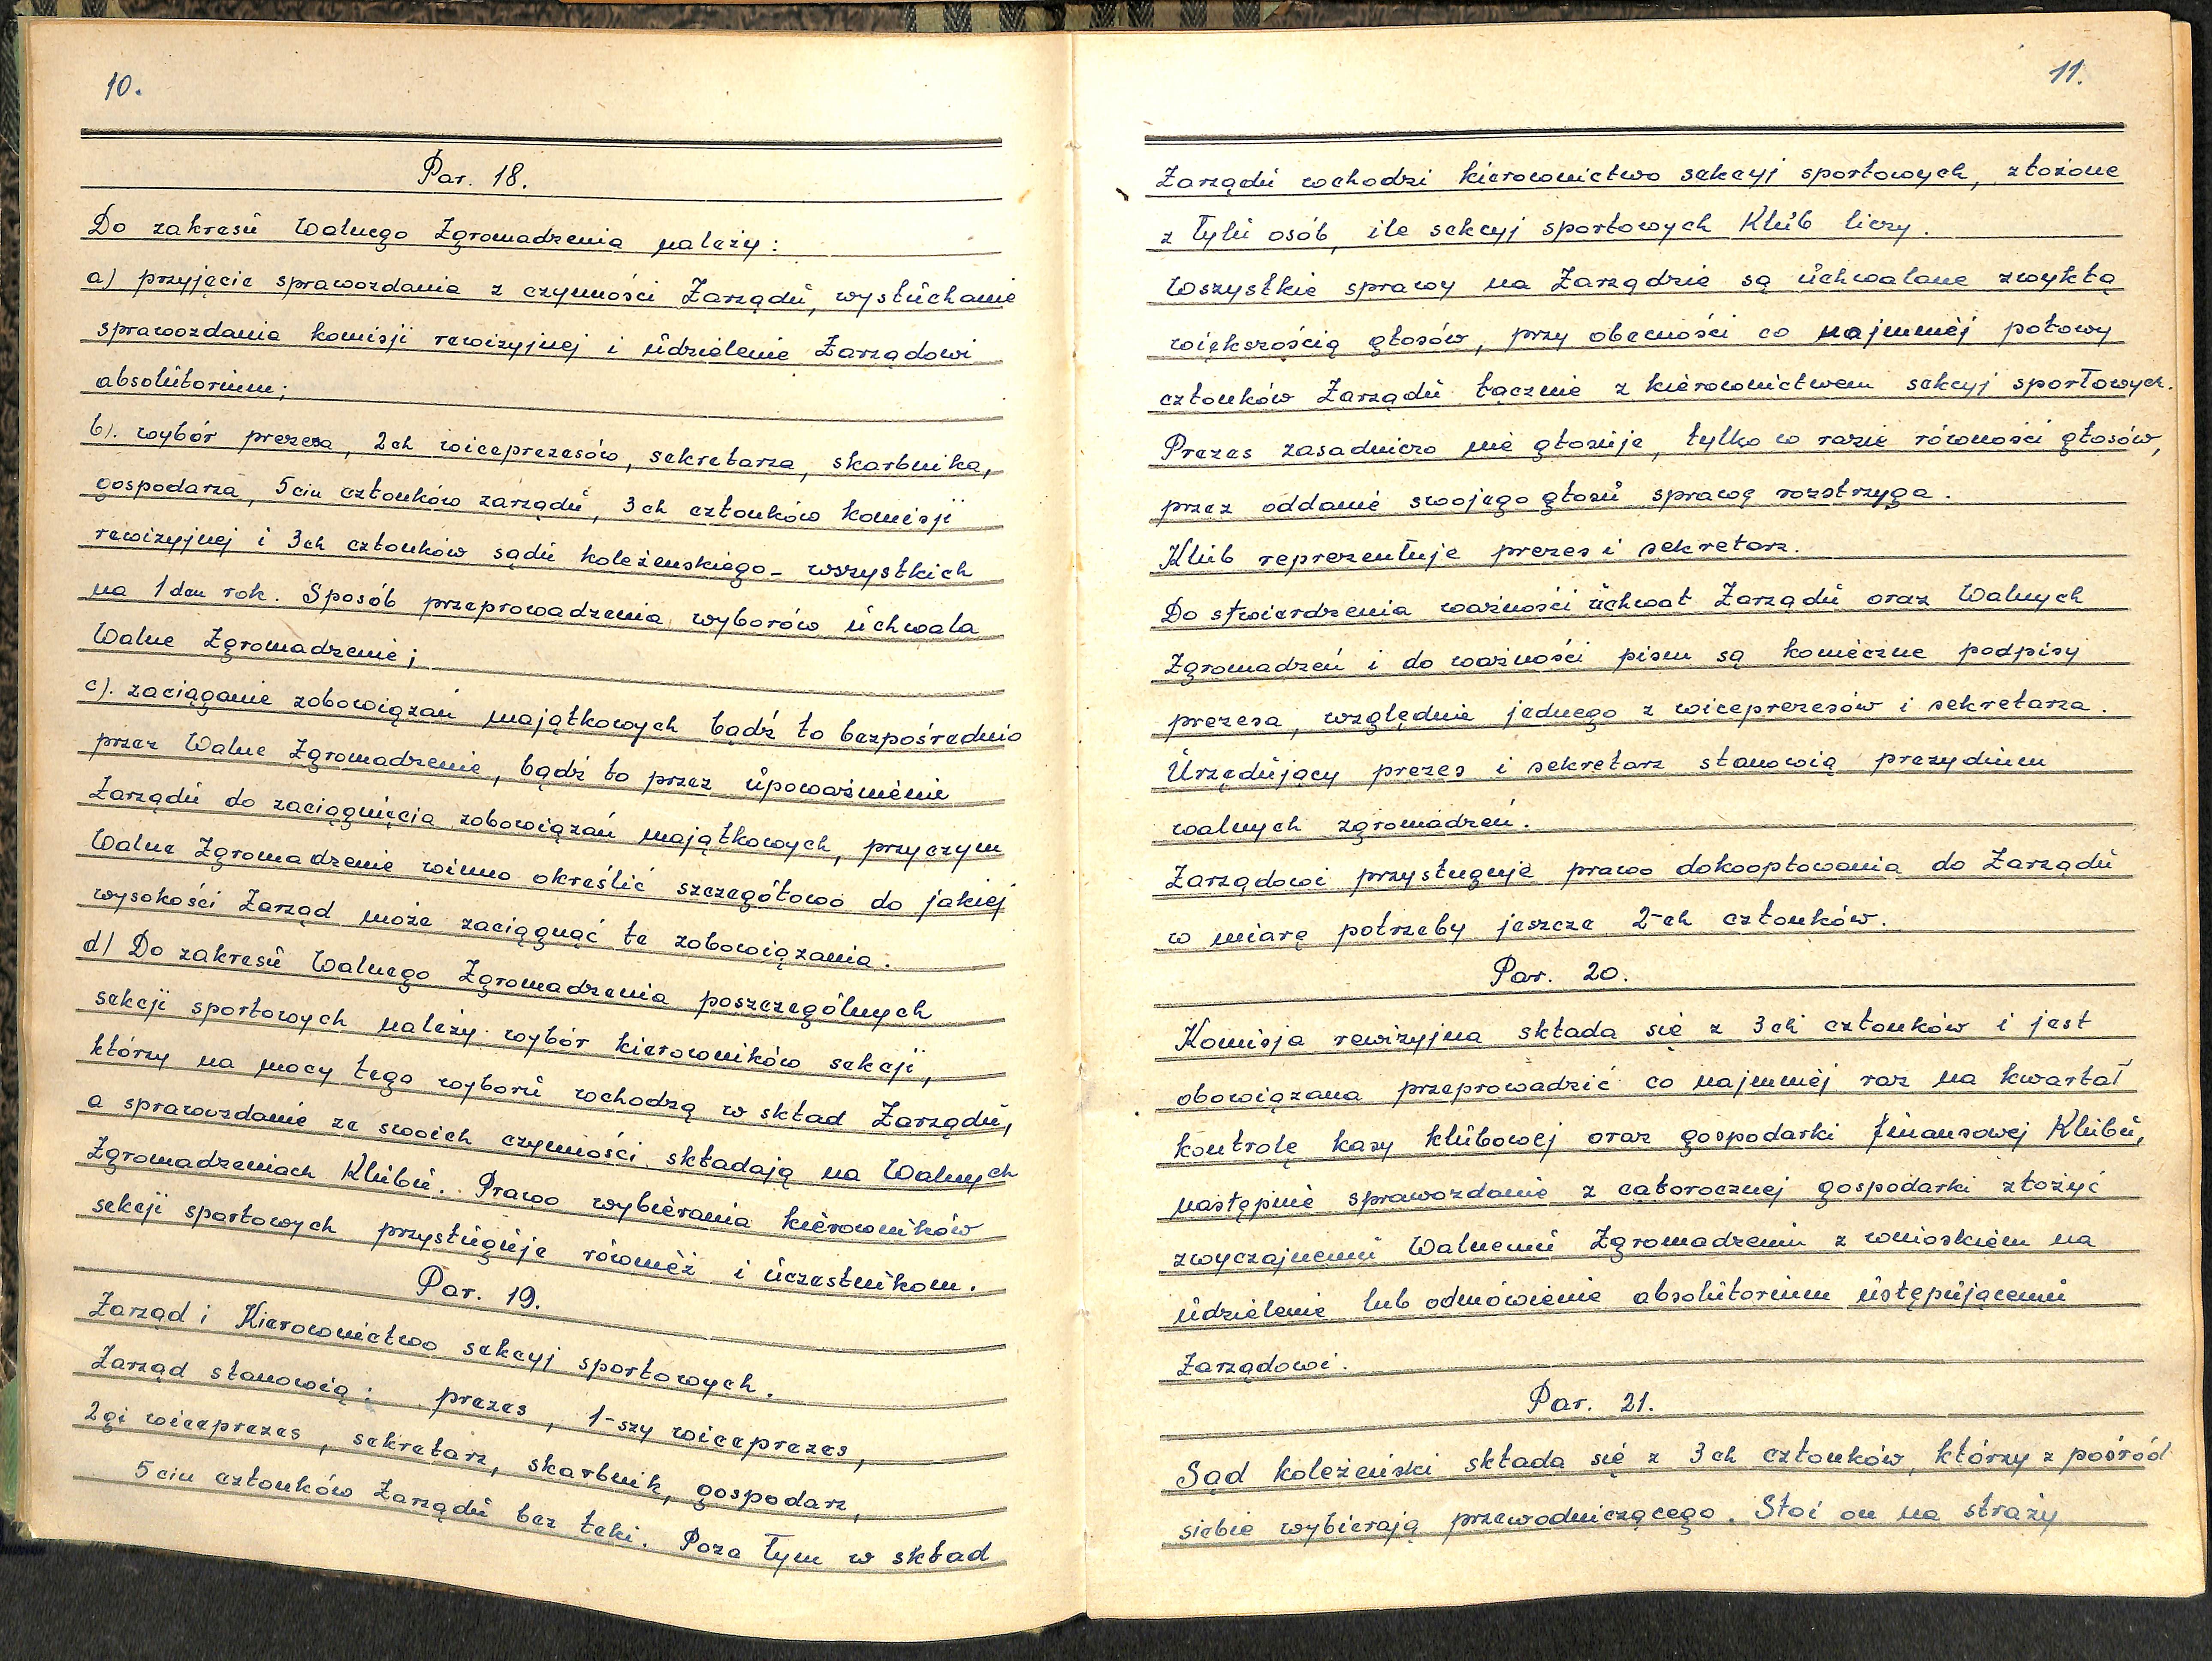 10.
Par. 18.
Do zakresu Walnego Zgromadzenia należy:
a) przyjęcie sprawozdania z czynności Zarządu, wysłuchanie
sprawozdania komisji rewizyjnej i udzielenie Zarządowi
absolutorium;
b). wybór prezesa, 2ch wiceprezesów, sekretarza, skarbnika,
gospodarza, 5ciu członków zarządu, 3ch członków komisji
rewizyjnej i 3ch członków sądu koleżenskiego - wszystkich
na 1den rok. Sposób przeprowadzenia wyborów uchwala
Walne Zgromadzenie;
c). zaciąganie zobowiązań majątkowych bądź to bezpośrednio
przez Walne Zgromadzenie, bądź to przez upoważnienie
Zarządu do zaciągnięcia zobowiązań majątkowych, przyczym
Walne Zgromadzenie winno określić szczegółowo do jakiej
wysokości Zarząd może zaciągnąć te zobowiązania.
d) Do zakresu Walnego Zgromadzenia poszczególnych
sekcji sportowych należy wybór kierowników sekcji,
którzy na mocy tego wyboru wchodzą w skład Zarządu,
a sprawozdanie ze swoich czynności składają na Walnych
Zgromadzeniach Klubu. Prawo wybierania kierowników
sekcji sportowych przysługuje również i uczestnikom.
Par. 19.
Zarząd i Kierownictwo sekcyj sportowych.
Zarząd stanowią: prezes, 1-szy wiceprezes,
2gi wiceprezes, sekretarz, skarbnik, gospodarz,
5ciu członków Zarządu bez teki. Poza tym w skład
11.
Zarządu wchodzi kierownictwo sekcyj sportowych, złożone
z tylu osób, ile sekcyj sportowych Klub liczy.
Wszystkie sprawy na Zarządzie są uchwalane zwykłą
większością głosów, przy obecności co najmniej połowy
członków Zarządu łącznie z kierownictwem sekcyj sportowych.
Prezes zasadniczo nie głosuje, tylko w razie równości głosów,
przez oddanie swojego głosu sprawę rozstrzyga.
Klub reprezentuje prezes i sekretarz.
Do stwierdzenia ważności uchwał Zarządu oraz Walnych
Zgromadzeń i do ważności pism są konieczne podpisy
prezesa, względnie jednego z wiceprezesów i sekretarza.
Urzędujący prezes i sekretarz stanowią prezydium
walnych zgromadzeń.
Zarządowi przysługuje prawo dokooptowania do Zarządu
w miarę potrzeby jeszcze 2-ch członków.
Par. 20.
Komisja rewizyjna składa się z 3ch członków i jest
obowiązana przeprowadzić co najmniej raz na kwartał
kontrolę kasy klubowej oraz gospodarki finansowej Klubu,
następnie sprawozdanie z całorocznej gospodarki złożyć
zwyczajnemu Walnemu Zgromadzeniu z wnioskiem na
udzielenie lub odmówienie absolutorium ustępującemu
Zarządowi.
Par. 21.
Sąd koleżeński składa się z 3ch członków, którzy z pośród
siebie wybierają przewodniczącego. Stoi on na straży